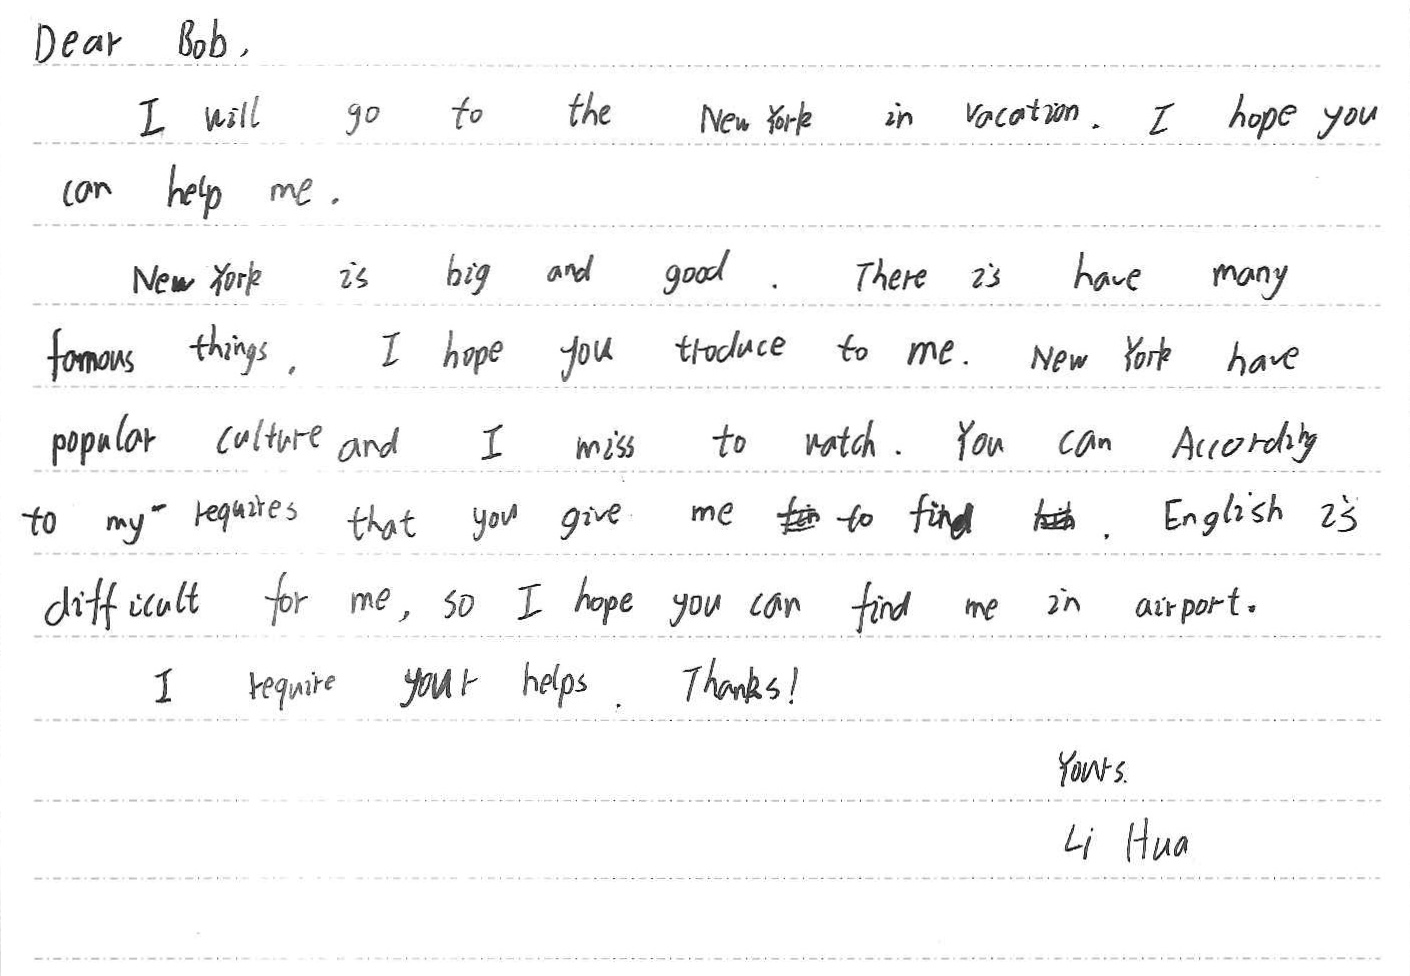 Dear Bob,
I will go to the New York in vacation. I hope you
can help me.
New York is big and good. There is have many
famous things. I hope you troduce to me. New York have
popular culture and I miss to watch. You can According
to my requires that you give me to find. English is
difficult for me, so I hope you can find me in airport.
I require your helps. Thanks!
Yours.
Li Hua